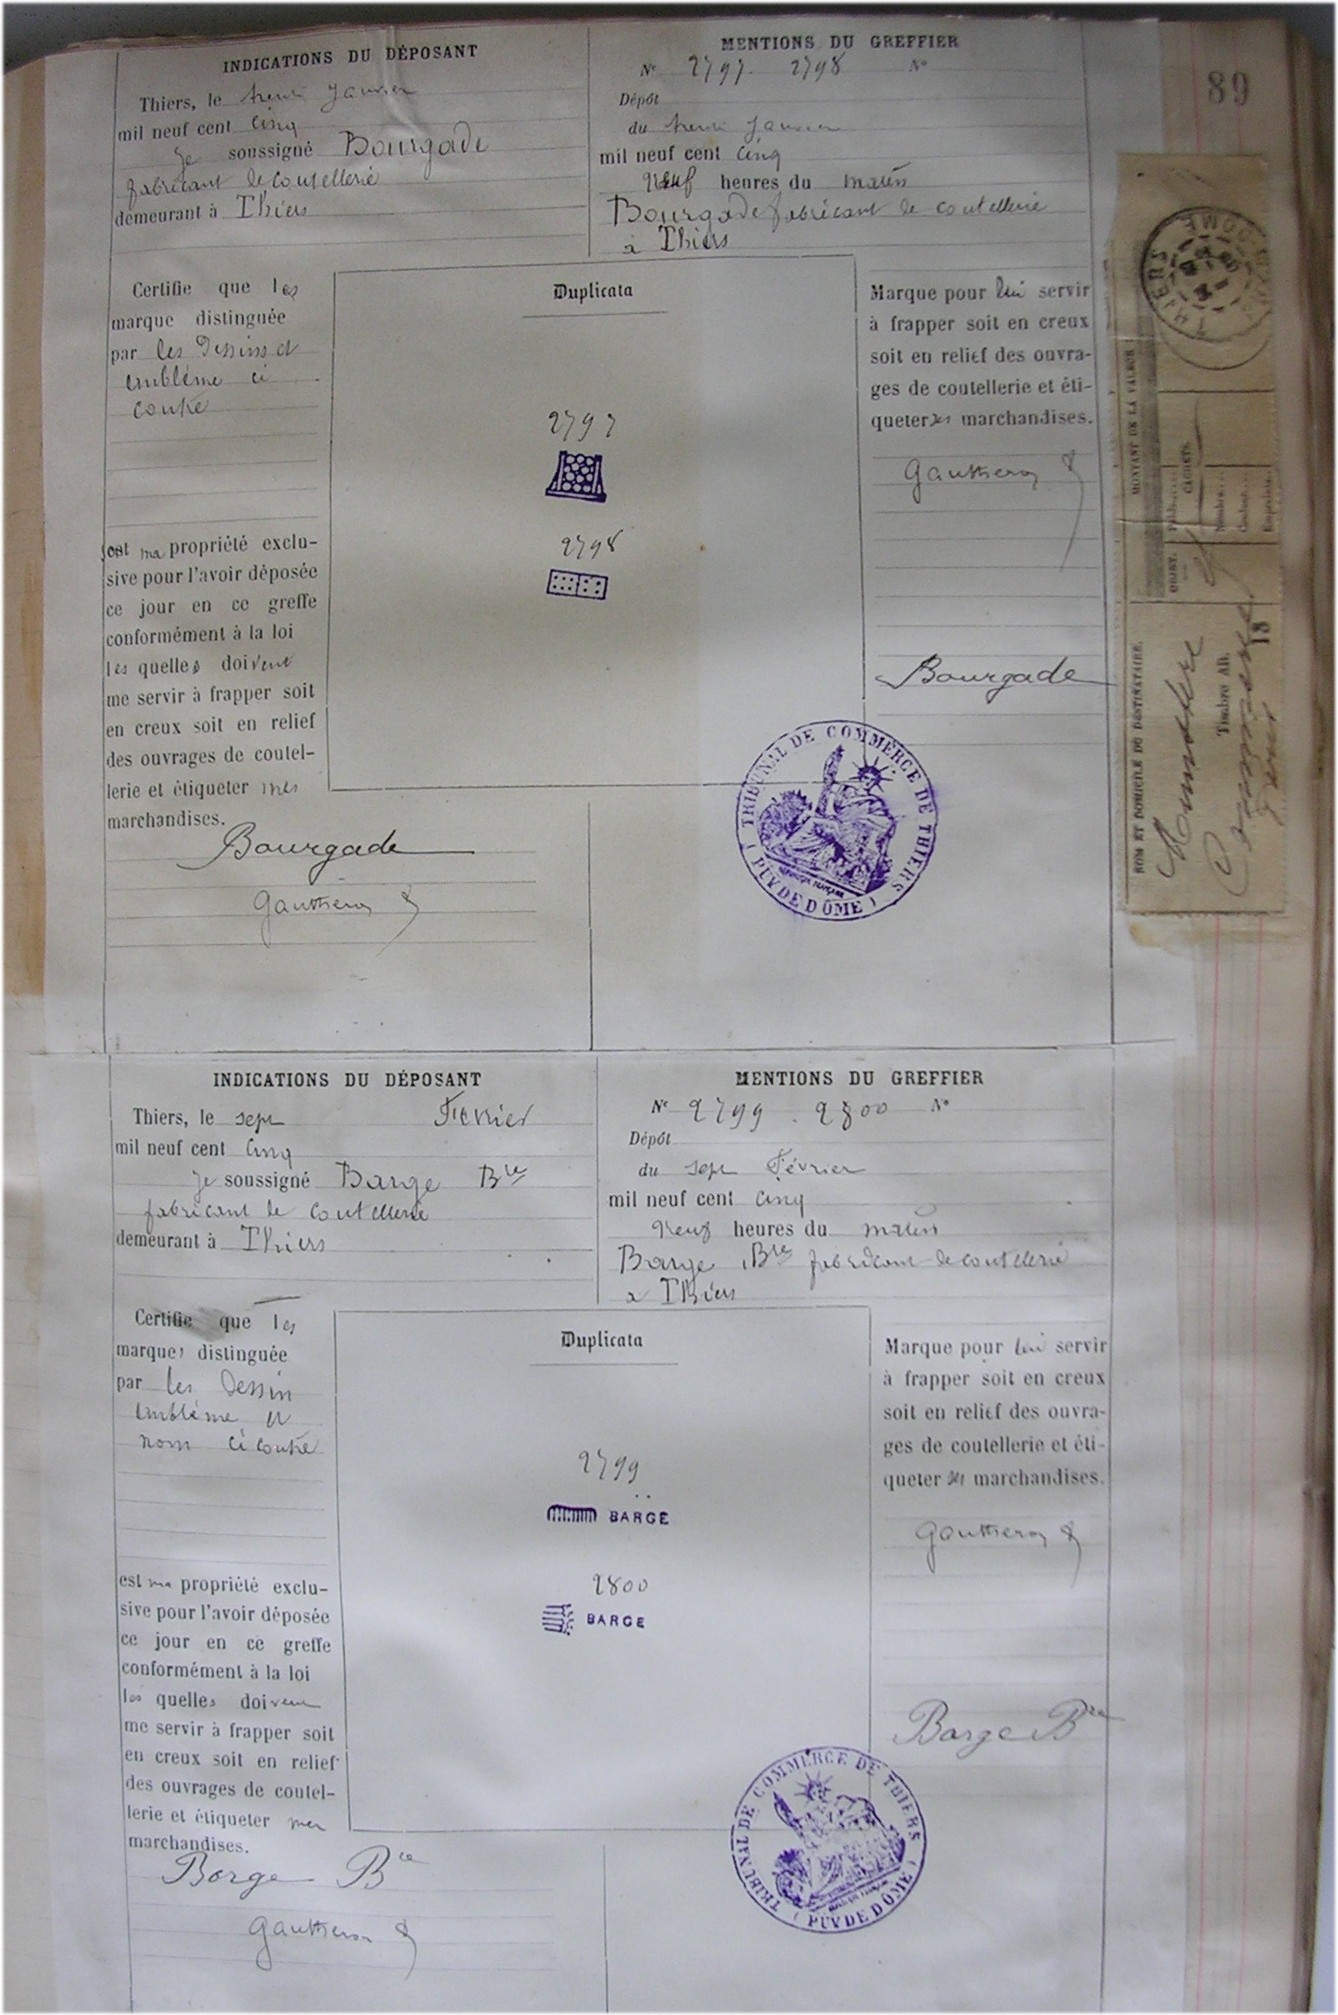 89
INDICATIONS DU DÉPOSANT
Thiers, le trente Janvier
mil neuf cent Cinq
Je soussigné Bourgade
fabricant de coutellerie
demeurant à Thiers
MENTIONS DU GREFFIER
Nº 2797 2798 Nº
Dépôt
du trente Janvier
mil neuf cent Cinq
Neuf heures du matin
Bourgade fabricant de coutellerie
à Thiers
Certifie que les
marque distinguée
par les Dessins et
emblème ci
contre
sont ma propriété exclu-
sive pour l'avoir déposée
ce jour en ce greffe
conformément à la loi
les quelles doivent
me servir à frapper soit
en creux soit en relief
des ouvrages de coutel-
lerie et étiqueter mes
marchandises.
Bourgade
Gauthier
Duplicata
2797
2798
Marque pour lui servir
à frapper soit en creux
soit en relief des ouvra-
ges de coutellerie et éti-
queter ses marchandises.
Gauthier
Bourgade
TRIBUNAL DE COMMERCE DE THIERS
(PUY DE DÔME)
THIERS
PUY-DE-DOME
MONTANT DE LA VALEUR
OBJET.
CACHETS.
Nombre
Couleur
Empreinte
NOM ET DOMICILE DU DESTINATAIRE.
Timbre AR.
18
INDICATIONS DU DÉPOSANT
Thiers, le sept Février
mil neuf cent Cinq
Je soussigné Barge Bte
fabricant de coutellerie
demeurant à Thiers
MENTIONS DU GREFFIER
Nº 2799 2800 Nº
Dépôt
du sept Février
mil neuf cent Cinq
Neuf heures du matin
Barge Bte fabricant de coutellerie
à Thiers
Certifie que les
marques distinguée
par les dessin
emblème et
nom ci contre
est ma propriété exclu-
sive pour l'avoir déposée
ce jour en ce greffe
conformément à la loi
les quelles doivent
me servir à frapper soit
en creux soit en relief
des ouvrages de coutel-
lerie et étiqueter mes
marchandises.
Barge Bte
Gauthier
Duplicata
2799
BARGE
2800
BARGE
Marque pour lui servir
à frapper soit en creux
soit en relief des ouvra-
ges de coutellerie et éti-
queter ses marchandises.
Gauthier
Barge Bte
TRIBUNAL DE COMMERCE DE THIERS
(PUY DE DÔME)